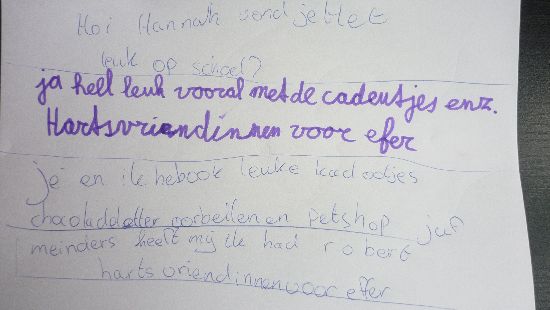 Hoi Hannah vond je het
leuk op school?
ja heel leuk vooral met de cadeutjes enz.
Hartsvriendinnen voor efer
je en ik heb ook leuke kadootjes
en petshop juf
meinders heeft mij ik had robert
hartsvriendinnen voor effer